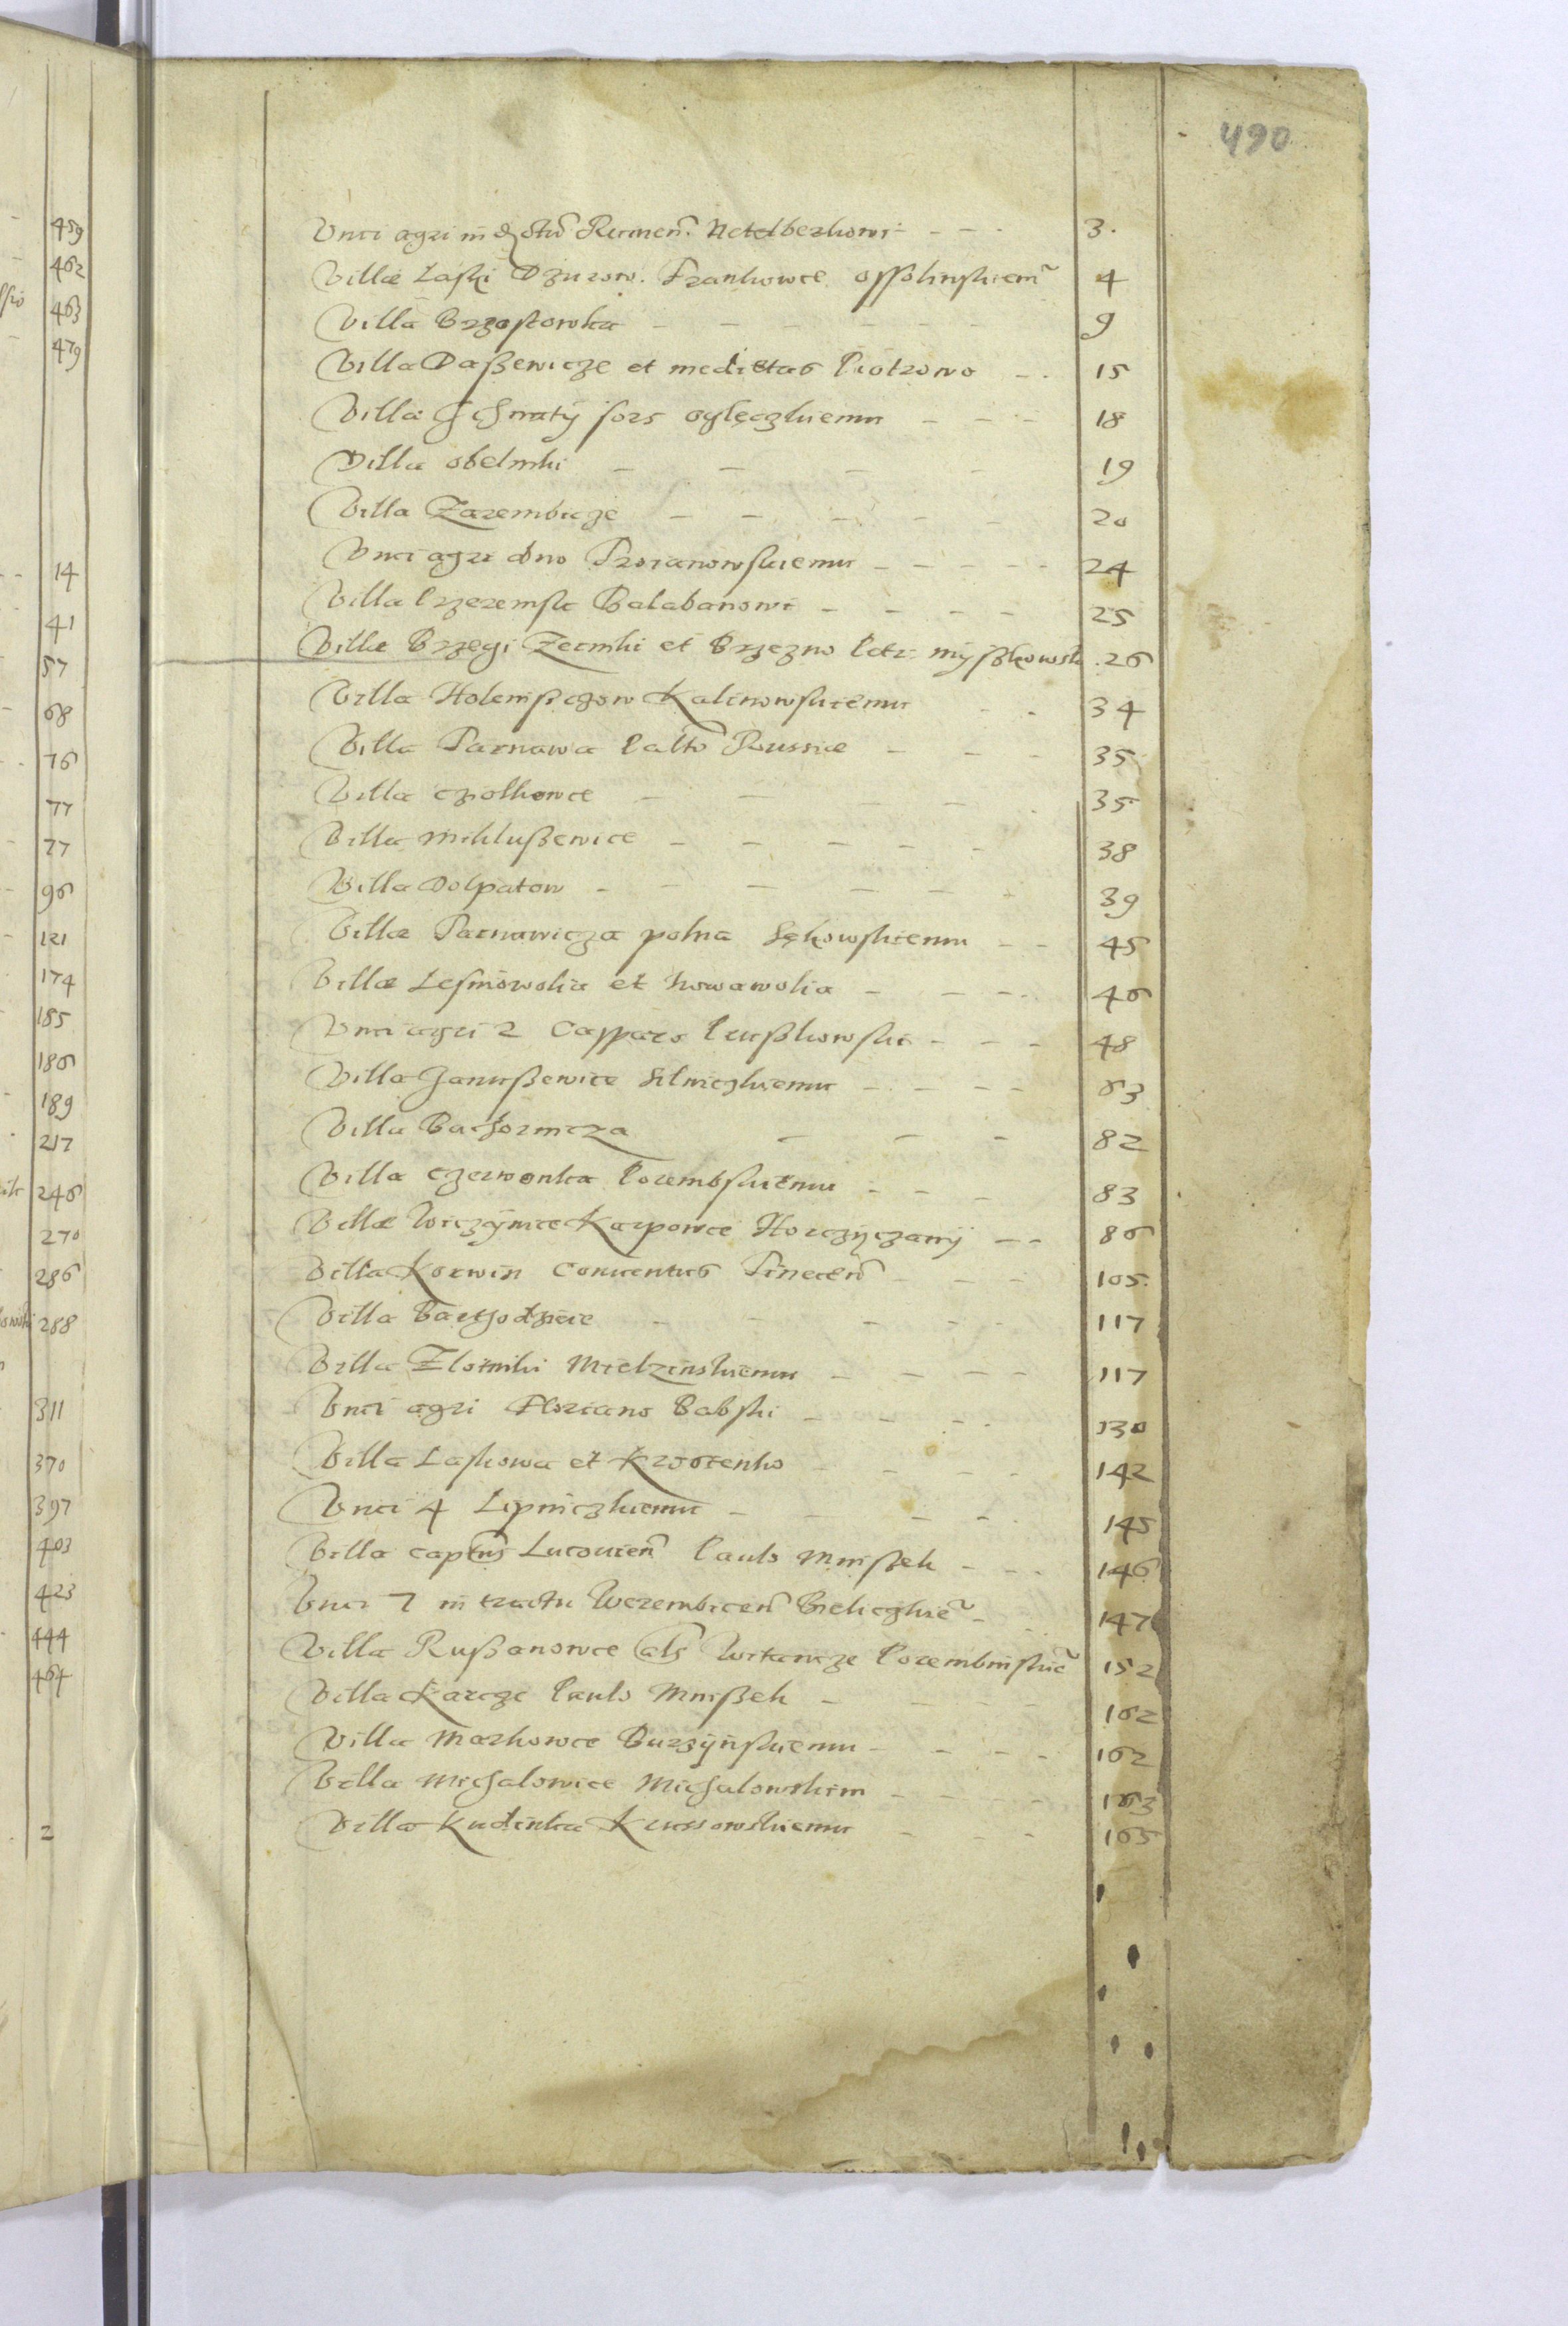 490
Unci agri in Netelberkowi - - - 3.
Villæ Laski Dzurow. Frankowce Ossolinskiem 4
Villa Brzostowka - - - - - 9
Villa Daßewicze et medietas Piotrowo - . 15
Villæ sors oględzkiemu - - - 18
Villa obelniki - - - - 19
Villa Zarembicze - - - - - 20
Unci agri dno Troianowskiemu - - - - - 24
Villa Przeremsk Balabanowi - - - - 25
Villæ Brzegi Zecniki et Brzezno Petr Myßkowsk . 26
Villa Kalinowskiemu - - 34
Villa Tarnawa Paltu Russiæ - - - 35
Villa czolkowce - - - - 35
Villa Miklußewice - - - - - 38
Villa Dolpatow - - - - - - 39
Villæ Tarnawicza polna Sękowskiemu - - 45
Villæ Lesniowolia et Nowawolia - - - - 46
Unci agri 2 Casparo Prußkowski - - - 48
Villa Janußewice Silniczkiemu - - - - 63
Villa Bachormcza - - - 82
Villa Czerwonka Porembskiemu - - - 83
Villæ Woiczynce Karpowce Horczyczany - - 86
Villa Korwin Conventus - - - 105.
Villa Barthodzieie - - - - - 117
Villa Zlotniki Mielzinskiemu - - - - 117
Unci agri Floriano Babski - - - - 130
Villa Laskowa et Krzotenko - - - - 142
Unci 4 Lipniczkiemu - - - - 145
Villa captus Lucovien Paulo Mnißek - - - 146
Unci 7 in tractu Werembicen Bieliczkie - 147
Villa Rußanowce als Witawcze Porembinskie 152
Villa Karcze Paulo Mnißek - - - - 162
Villa Markowce Burzynskiemu - - - - 162
Villa Michalowice Michalowskim - - - - 163
Villa Kudinka Kurssowskiemu - - - 165
459
462
463
479
14
41
57
68
76
77
77
96
121
174
185
186
189
217
246
270
286
288
311
370
397
403
423
444
464
2